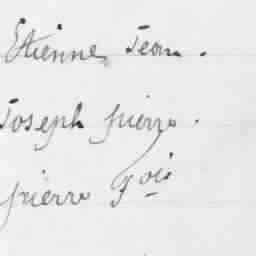 Etienne Jean.
Joseph pierre.
pierre Fois